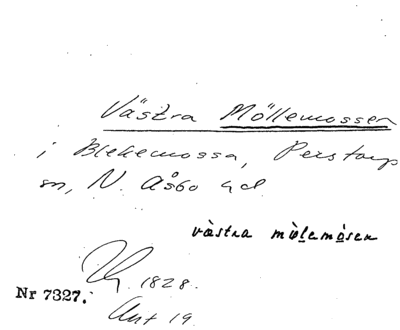 Västra Möllemossen
i Blekemossa, Perstorp
sn, N. Åsbo hd
västra mølemåsen
1828.
Nr 7327.
Akt 19